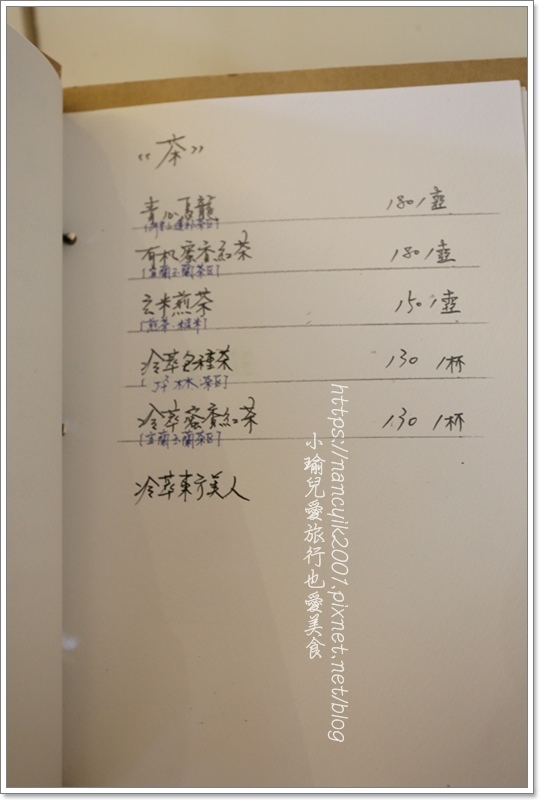 《茶》
青心烏龍 180/壺
有机蜜香紅茶 180/壺
[宜蘭玉蘭茶區]
玄米煎茶 150/壺
[煎茶、糙米]
冷萃包種茶 130 1杯
[坪林茶區]
冷萃蜜香紅茶 130 1杯
[宜蘭玉蘭茶區]
冷萃東方美人
小瑜兒愛旅行也愛美食
https://nancyik2001.pixnet.net/blog